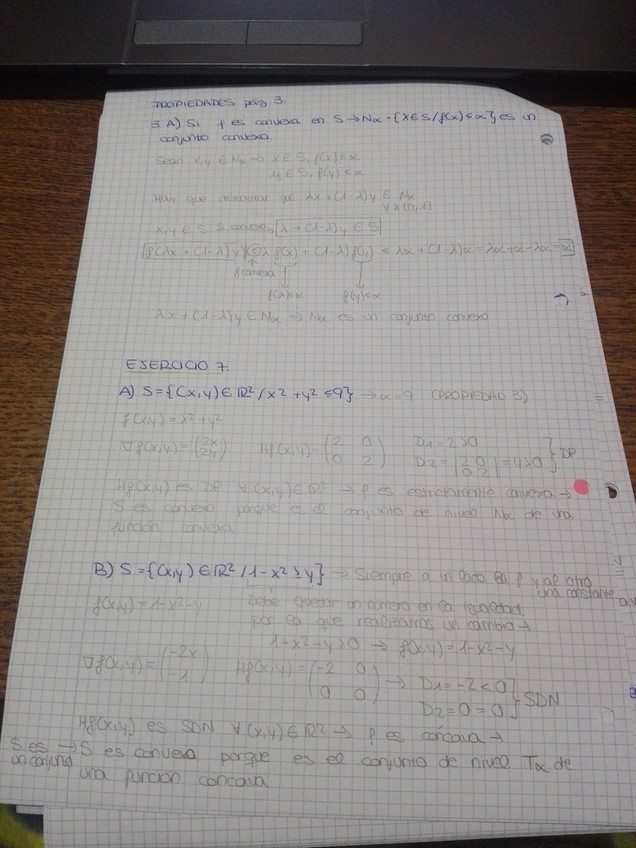 PROPIEDADES pág 3.
3 A) Si f es convexa en S → Nα = {x ∈ S / f(x) ≤ α} es un
conjunto convexo.
Sean x,y ∈ Nα → x ∈ S, f(x) ≤ α
y ∈ S, f(y) ≤ α
Hay que demostrar que λx + (1-λ)y ∈ Nα
x,y ∈ S S convexo λ + (1-λ)y ∈ S
f(λx + (1-λ)y) ≤ λ f(x) + (1-λ) f(y) ≤ λα + (1-λ)α = λα + α - λα = α
f convexa
f(x) ≤ α f(y) ≤ α
λx + (1-λ)y ∈ Nα → Nα es un conjunto convexo
EJERCICIO 7.
A) S = {(x,y) ∈ ℝ² / x² + y² ≤ 9} → α = 9 (PROPIEDAD 3)
f(x,y) = x² + y²
∇f(x,y) = (2x 2y) Hf(x,y) = (2 0 0 2) D1 = 2 > 0
D2 = |2 0 0 2| = 4 > 0 } DP
Hf(x,y) es DP ∀(x,y) ∈ ℝ² → f es estrictamente convexa →
S es convexo porque es el conjunto de nivel Nα de una
función convexa
B) S = {(x,y) ∈ ℝ² / 1 - x² ≥ y} → Siempre a un lado la f y al otro
una constante
f(x,y) = 1 - x² - y debe quedar un número en la
por lo que realizamos un cambio →
1 - x² - y ≥ 0 → f(x,y) = 1 - x² - y
∇f(x,y) = (-2x -1) Hf(x,y) = (-2 0 0 0) → D1 = -2 < 0
D2 = 0 = 0 } SDN
Hf(x,y) es SDN ∀(x,y) ∈ ℝ² → f es cóncava →
S es → S es convexa porque es el conjunto de nivel Tα de
un conjunto
una función cóncava